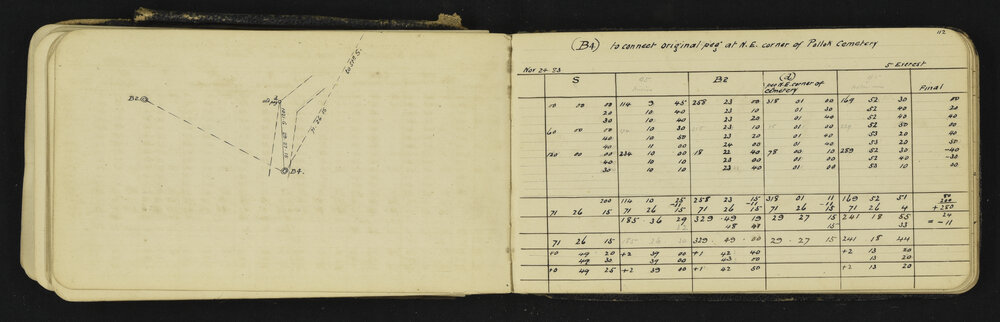 B2
old peg
B4.
112
(B4) to connect Original peg at N.E. corner of Pollok Cemetery
Nov 24 53 5" Everest
S B2 (a) Final
peg N.E. corner of
Cemetery
00 00 00 114 9 45 258 23 00 318 01 00 169 52 30 00
20 10 40 23 10 01 30 52 40 20
30 10 40 23 20 01 40 52 40 40
60 00 00 10 30 23 10 01 00 52 50 00
40 10 50 23 20 01 40 53 20 40
40 11 00 24 00 01 40 53 20 50
120 00 00 234 10 10 18 22 40 78 00 10 289 52 30 -40
40 10 10 23 00 01 00 52 40 -30
30 10 10 23 40 01 00 53 10 00
200 114 10 25 258 23 15 318 01 11 169 52 51
71 26 15 71 26 15 71 26 15 71 26 15 71 26 4 +280
185 36 29 329 49 19 29 27 15 241 18 55 24
48 49 15 33 = -11
71 26 15 329 49 00 29 27 15 241 18 44
+0 49 20 +2 39 00 +1 42 40 +2 13 20
49 30 39 00 43 00 13 20
+0 49 25 +2 39 00 +1 42 50 +2 13 20